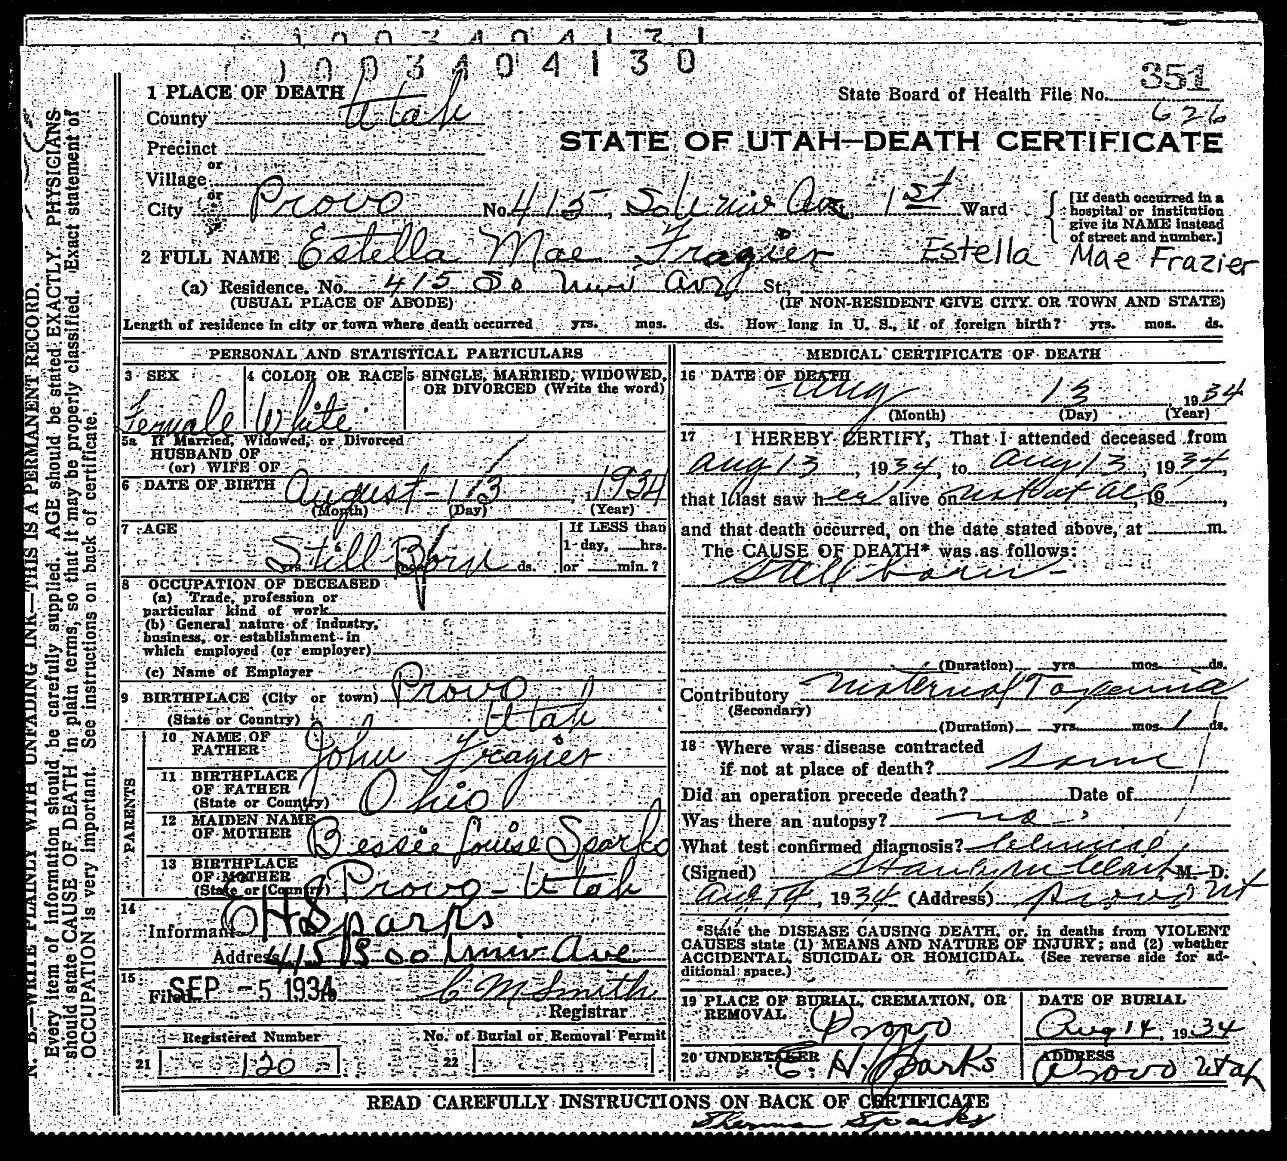 1003404131
1003404130
351
1 PLACE OF DEATH
State Board of Health File No.
626
County Utah
STATE OF UTAH—DEATH CERTIFICATE
Precinct
or
Village
or
City Provo No. 415, So Univ Ave St., 1st Ward
[If death occurred in a hospital or institution give its NAME instead of street and number.]
2 FULL NAME Estella Mae Frazier Estella Mae Frazier
(a) Residence. No. 415 So Univ Ave St.
(USUAL PLACE OF ABODE) (IF NON-RESIDENT GIVE CITY OR TOWN AND STATE)
Length of residence in city or town where death occurred yrs. mos. ds. How long in U. S., if of foreign birth? yrs. mos. ds.
PERSONAL AND STATISTICAL PARTICULARS
3 SEX
Female
4 COLOR OR RACE
White
5 SINGLE, MARRIED, WIDOWED,
OR DIVORCED (Write the word)
5a If Married, Widowed, or Divorced
HUSBAND OF
(or) WIFE OF
6 DATE OF BIRTH August - 13, 1934
(Month) (Day) (Year)
7 AGE
Still Born
yrs. mos. ds.
If LESS than
1 day, hrs.
or min.?
8 OCCUPATION OF DECEASED
(a) Trade, profession or
particular kind of work
(b) General nature of industry,
business, or establishment in
which employed (or employer)
(c) Name of Employer
9 BIRTHPLACE (City or town) Provo
(State or Country) Utah
PARENTS
10 NAME OF
FATHER John Frazier
11 BIRTHPLACE
OF FATHER
(State or Country) Ohio
12 MAIDEN NAME
OF MOTHER Bessie Louise Sparks
13 BIRTHPLACE
OF MOTHER
(State or Country) Provo - Utah
14
Informant E H Sparks
Address 415 So Univ Ave
15
Filed SEP -5 1934 C M Smith
Registrar
Registered Number
21 120
No. of Burial or Removal Permit
22
MEDICAL CERTIFICATE OF DEATH
16 DATE OF DEATH
Aug 13, 1934
(Month) (Day) (Year)
17 I HEREBY CERTIFY, That I attended deceased from
Aug 13, 1934, to Aug 13, 1934,
that I last saw her alive on not at all, 19
and that death occurred, on the date stated above, at m.
The CAUSE OF DEATH* was as follows:
Still born -
(Duration) yrs. mos. ds.
Contributory Maternal Toxemia
(Secondary)
(Duration) yrs. mos. 1 ds.
18 Where was disease contracted
if not at place of death? Same
Did an operation precede death? Date of
Was there an autopsy? no
What test confirmed diagnosis? Clinical
(Signed) Stanley M Clark, M. D.
Aug 14, 1934 (Address) Provo Ut
*State the DISEASE CAUSING DEATH, or, in deaths from VIOLENT
CAUSES state (1) MEANS AND NATURE OF INJURY; and (2) whether
ACCIDENTAL, SUICIDAL OR HOMICIDAL. (See reverse side for ad-
ditional space.)
19 PLACE OF BURIAL, CREMATION, OR
REMOVAL
Provo
DATE OF BURIAL
Aug 14, 1934
20 UNDERTAKER
E. H. Sparks
ADDRESS
Provo Utah
READ CAREFULLY INSTRUCTIONS ON BACK OF CERTIFICATE
Sherman Sparks
N. B.—WRITE PLAINLY WITH UNFADING INK—THIS IS A PERMANENT RECORD.
Every item of information should be carefully supplied. AGE should be stated EXACTLY. PHYSICIANS
should state CAUSE OF DEATH in plain terms, so that it may be properly classified. Exact statement of
OCCUPATION is very important. See instructions on back of certificate.